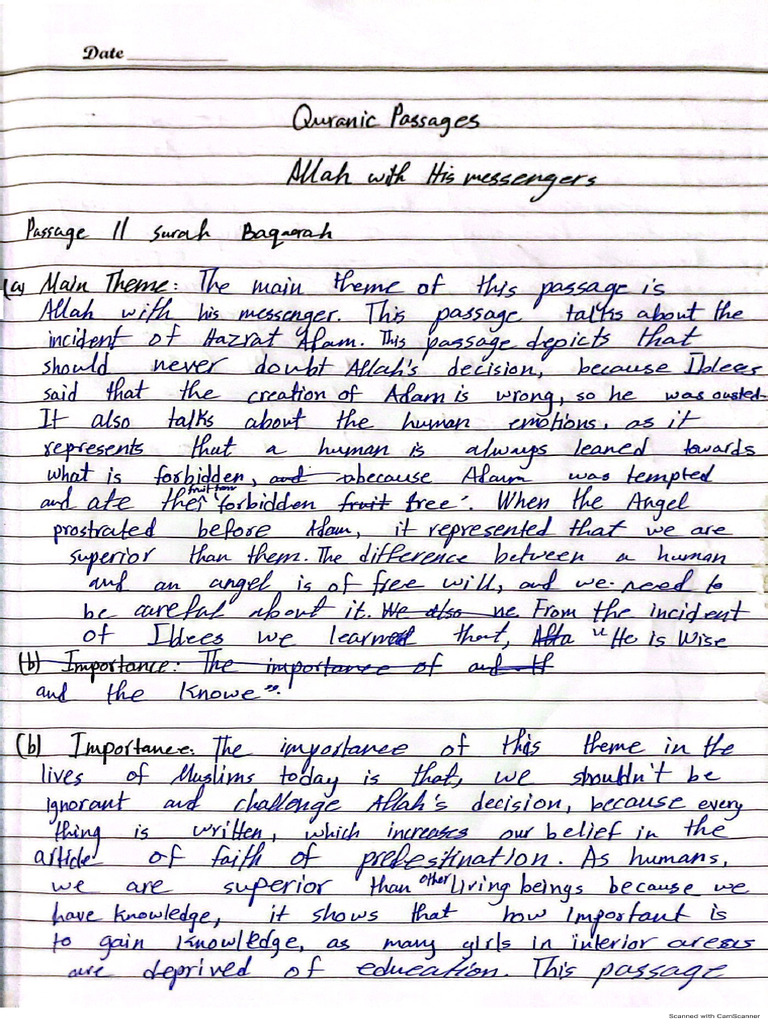 Date
Quranic Passages
Allah with His messengers
Passage 11 Surah Baqarah
(a) Main Theme: The main theme of this passage is
Allah with his messenger. This passage talks about the
incident of Hazrat Adam. This passage depicts that
should never doubt Allah's decision, because Iblees
said that the creation of Adam is wrong, so he was ousted.
It also talks about the human emotions, as it
represents that a human is always leaned towards
what is forbidden, and because Adam was tempted
and ate the fruit from 'forbidden fruit tree'. When the Angel
prostrated before Adam, it represented that we are
superior than them. The difference between a human
and an angel is of free will, and we need to
be careful about it. We also ne From the incident
of Iblees we learned that, "He is Wise
(b) Importance: The importance of and th
and the Knowe".
(b) Importance: The importance of this theme in the
lives of Muslims today is that, we shouldn't be
ignorant and challenge Allah's decision, because every
thing is written, which increases our belief in the
article of faith of predestination. As humans,
we are superior than other living beings because we
have knowledge, it shows that how important is
to gain knowledge, as many girls in interior areas
are deprived of education. This passage
Scanned with CamScanner